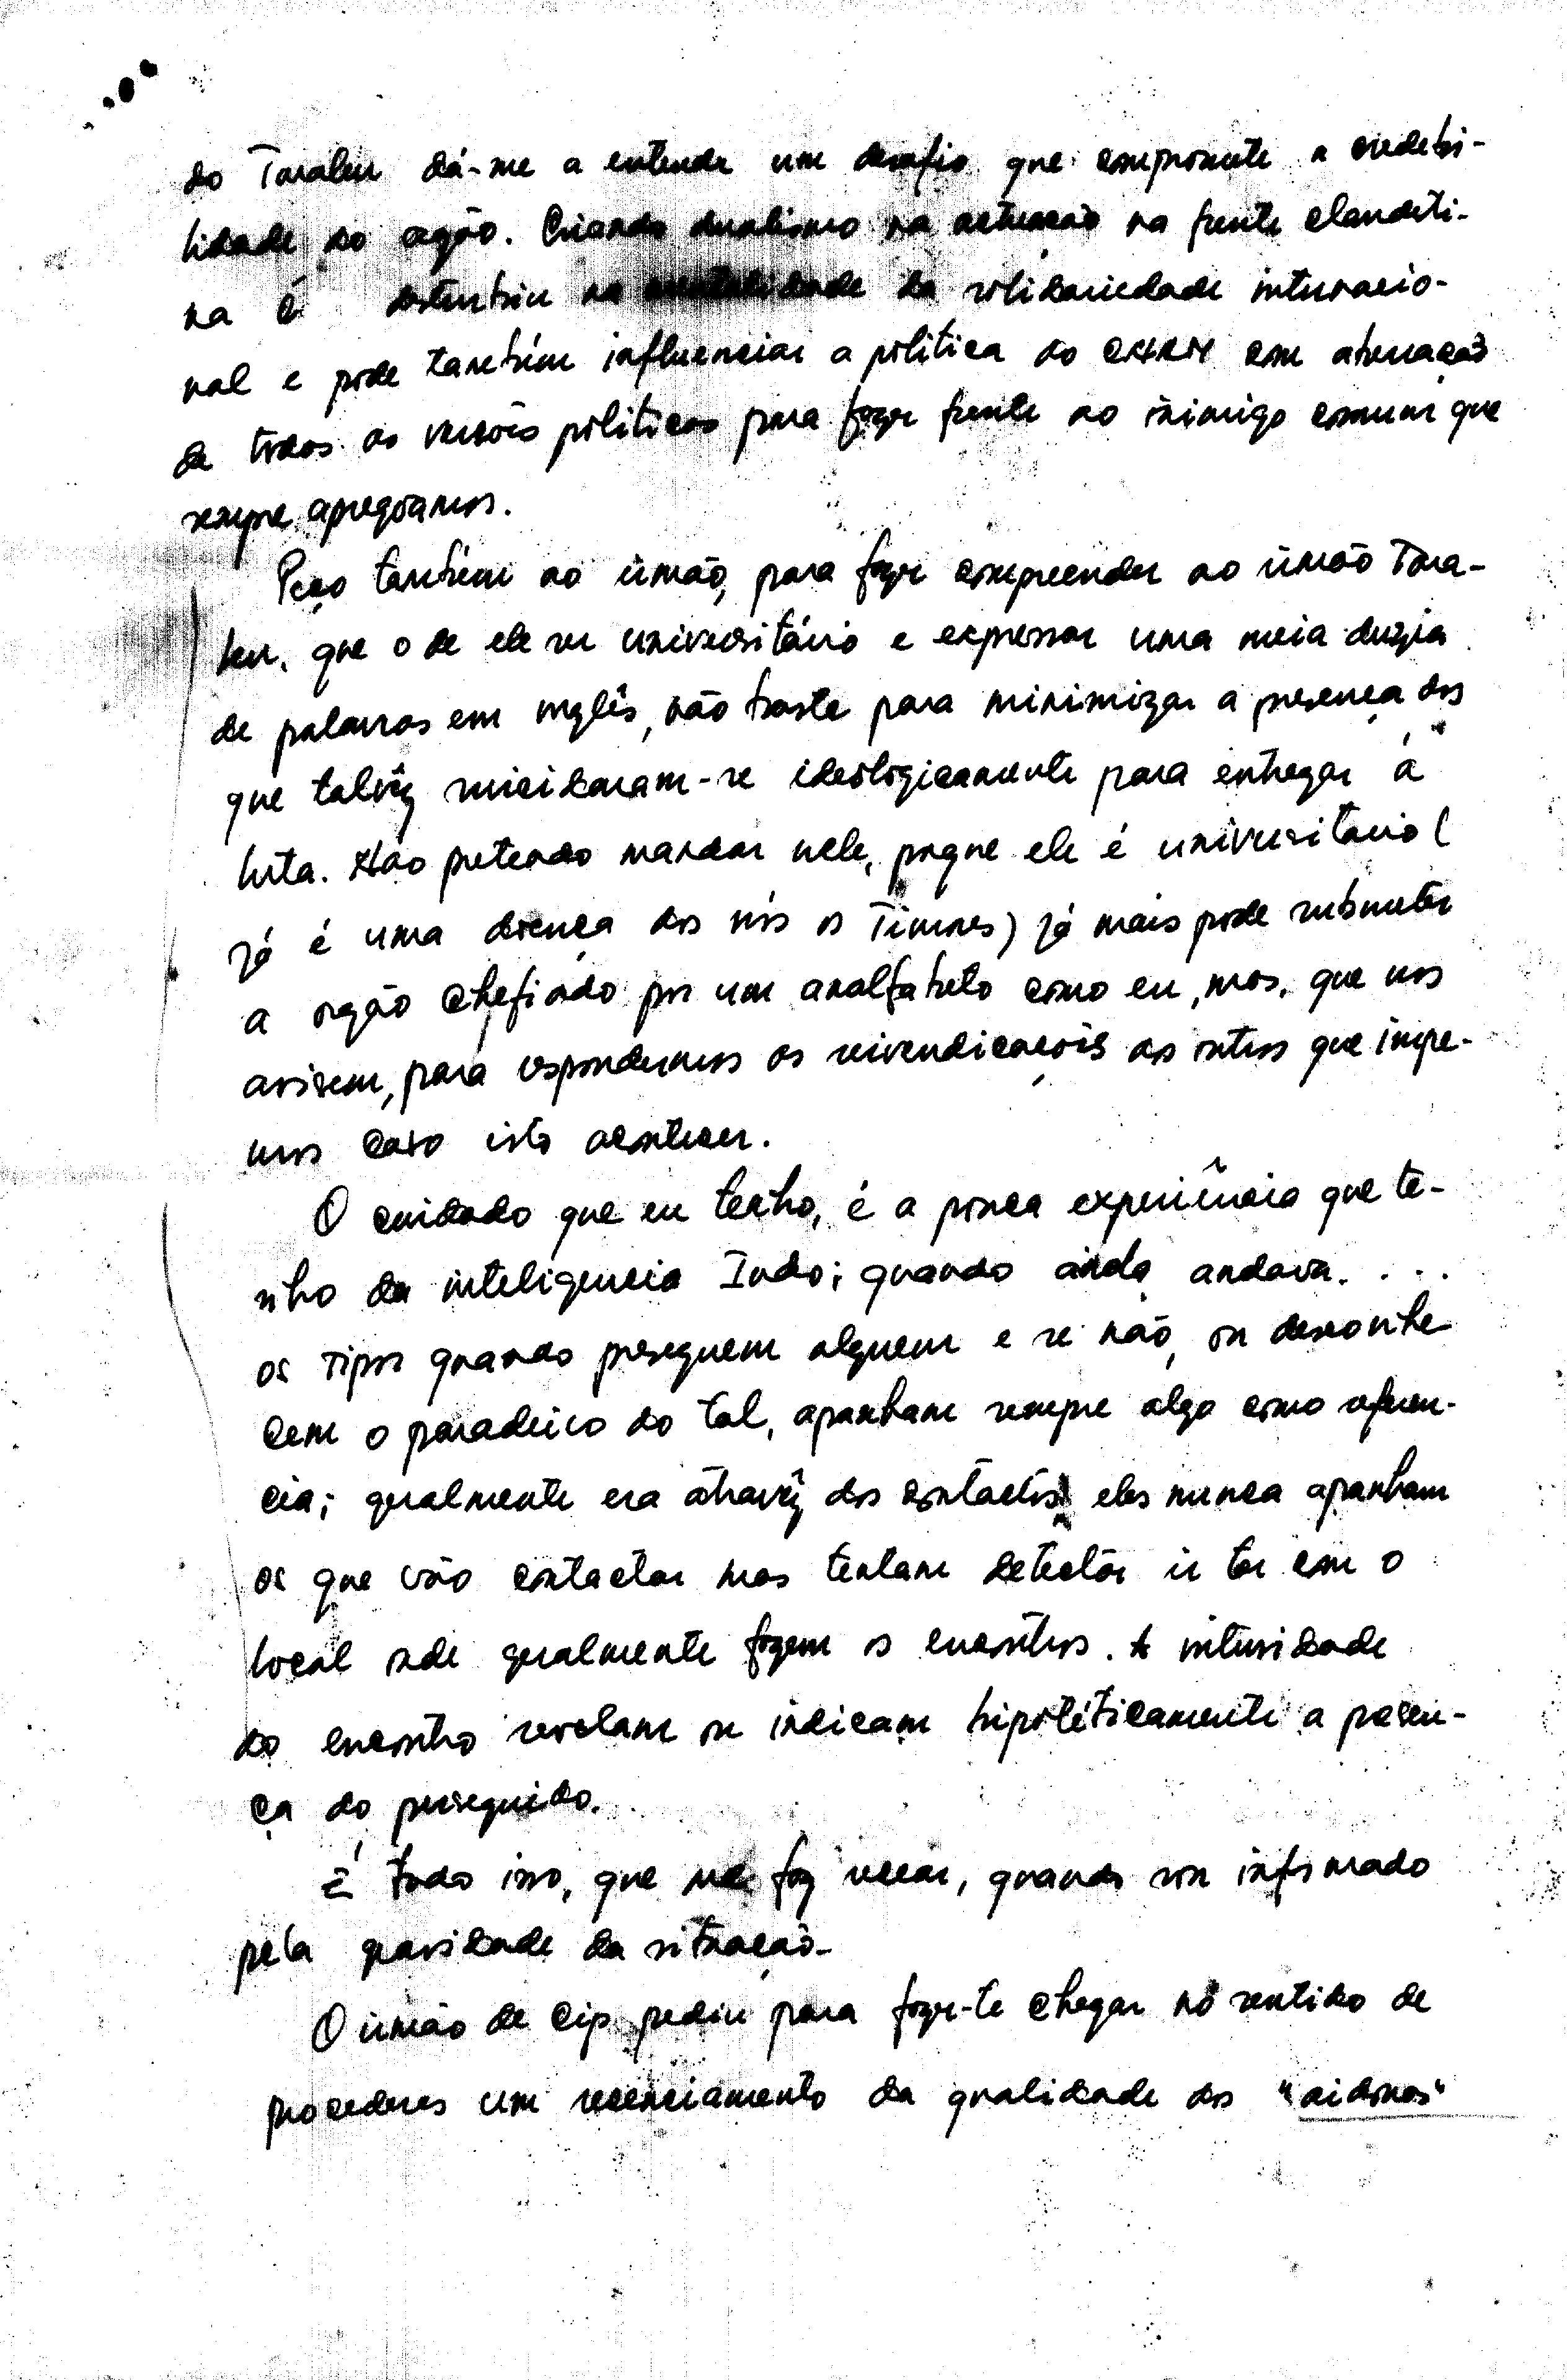 do Taraleu dá-me a entender um desafio que compromete a credebi-
lidade do orgão. Criando dualismo na actuação na frente clandeti-
na é disturbiu na mentalidade da solidariedade internacio-
nal e pode também influenciar a politica do CNRM com abnegação
de todos as versões politicas para fazer frente ao inimigo comum que
sempre apregoamos.
Peço também ao irmão, para fazer compreender ao irmão Tara-
leu, que o de ele ser universitário e expressar uma meia duzia
de palavras em inglês, não baste para minimizar a presença dos
que talvêz suicidaram-se ideologicamente para entregar á
luta. Não pretendo mandar nele, porque ele é universitario (
já é uma doença dos nós os Timores) já mais pode submeter
a orgão chefiado por um analfabeto como eu, mas, que nos
avisem, para respondermos as reivendicações aos outros que impe-
mos caso isto acontecer.
O cuidado que eu tenho, é a pouca experiência que te-
nho da inteligencia Indo; quando ainda andava. . . .
os tipos quando preseguem alguem e se não, ou desconhe-
cem o paradeiro do tal, apanham sempre algo como referen-
cia; geralmente era átravêz dos contactos eles nunca apanham
os que vão contactar mas tentam detectar ir ter com o
local onde geralmente fazem os encontros. A intensidade
do encontro revelam ou indicam hipotéticamente a presen-
ça do perseguido.
É tudo isso, que me faz recear, quando sou informado
pela gravidade da situação.
O irmão de Cip. pediu para fazer-te chegar nó sentido de
procederes um recenciamento da qualidade dos "aidonas"